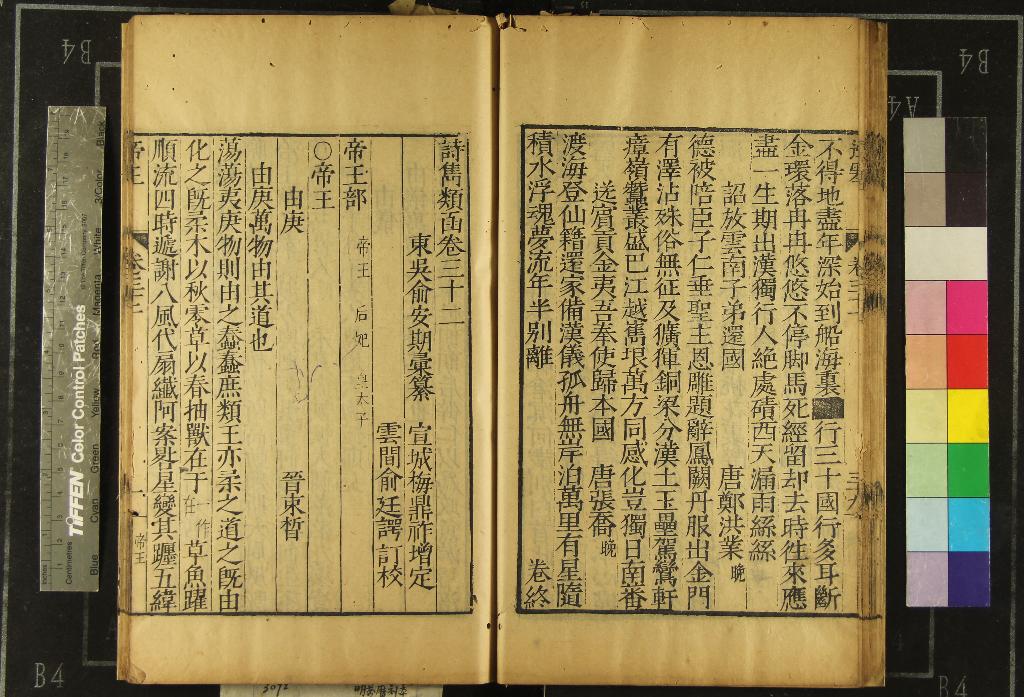 不得地盡年深始到船海裏■行三十國行多耳斷
金環落冉冉悠悠不停脚馬死經留却去時徃來應
盡一生期出漢獨行人絶處磧西天漏雨絲絲
詔放雲南子弟還國 唐鄭洪業 晩
德被陪臣子仁垂聖主恩雕題辭鳳闕丹服出金門
有澤沾殊俗無征及獷㹆銅梁分漢土玉壘駕鸞軒
瘴嶺蠶叢盛巴江越嶲垠萬方同感化豈獨日南蕃
送賓貢金夷吾奉使歸本國 唐張喬 晩
渡海登仙籍還家備漢儀孤舟無岸泊萬里有星隨
積水浮魂夢流年半别離 卷終
詩雋類函卷三十二
東吳俞安期彙纂 宣城梅鼎祚增定
雲間俞廷諤訂校
帝王部
帝王 后妃 皇太子
○帝王
由庚 晉束晳
由庚萬物由其道也
蕩蕩夷庚物則由之蠢蠢庶類王亦柔之道之旣由
化之旣柔木以秋零草以春抽獸在于 一作在 草魚躍
順流四時遞謝八風代扇纖阿案晷星變其躔五緯
帝王 卷三十二 一 帝王
TIFFEN Color Control Patches
Centimetres
Inches
Blue
Cyan
Green
Yellow
Red
Magenta
White
3/Color
Black
B4
B4
B4
B4
A4
3072